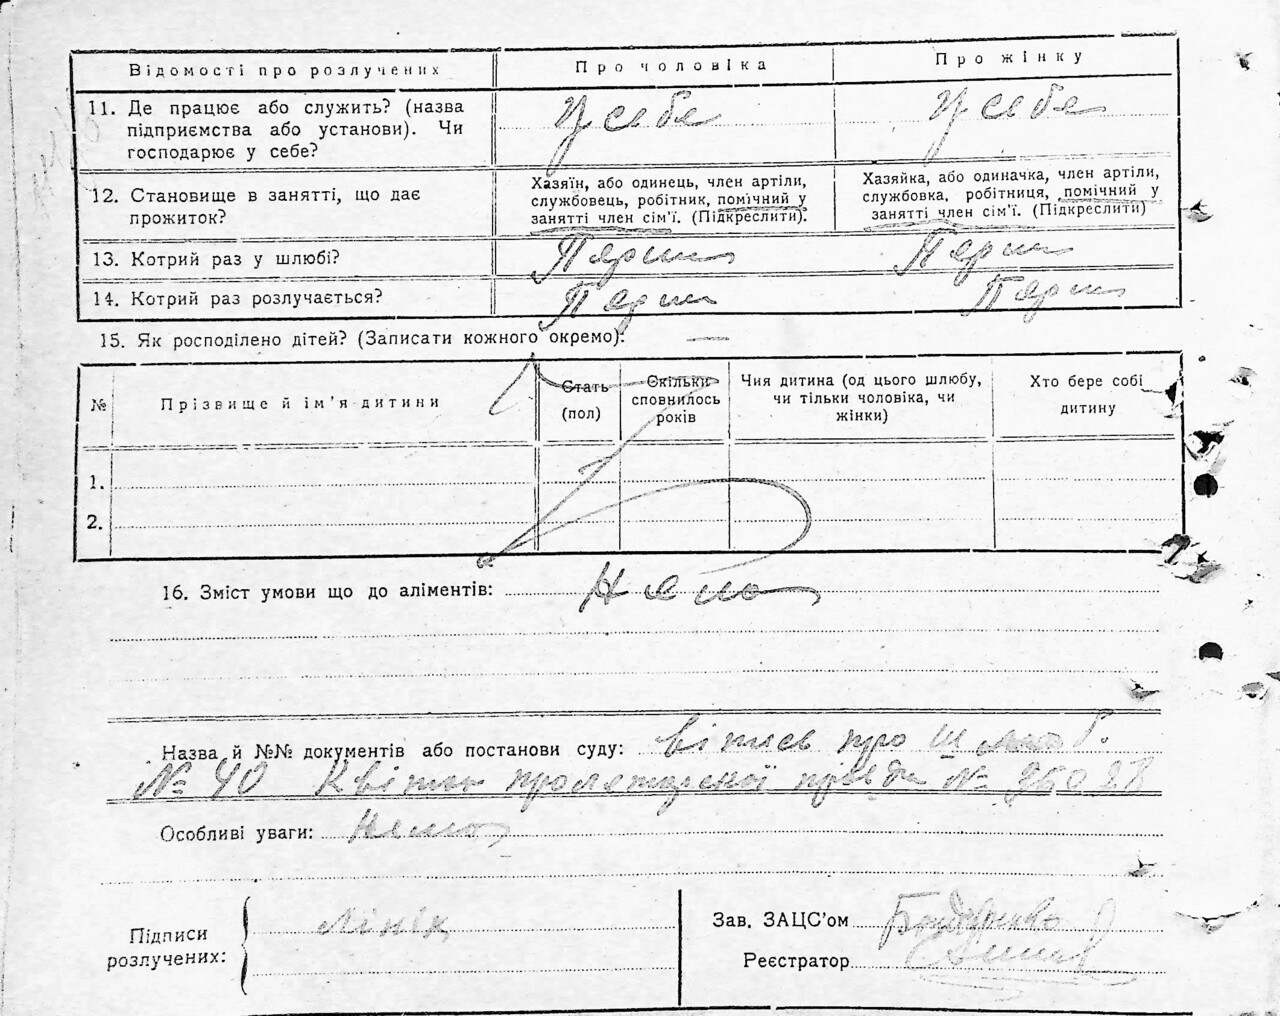 Відомості про розлучених Про чоловіка Про жінку
11. Де працює або служить? (назва підприємства або установи). Чи господарює у себе?
У себе У себе
12. Становище в занятті, що дає прожиток?
Хазяїн, або одинець, член артіли, службовець, робітник, помічний у занятті член сім'ї. (Підкреслити).
Хазяйка, або одиначка, член артіли, службовка, робітниця, помічний у занятті член сім'ї. (Підкреслити)
13. Котрий раз у шлюбі? Перш Перш
14. Котрий раз розлучається? Перш Перш
15. Як росподілено дітей? (Записати кожного окремо): —
№ Прізвище й ім'я дитини
Стать (пол)
Скільки сповнилось років
Чия дитина (од цього шлюбу, чи тільки чоловіка, чи жінки)
Хто бере собі дитину
1.
2.
16. Зміст умови що до аліментів: Нема
Назва й №№ документів або постанови суду: вітись про шлюб.
№ 40 Квіток пролетарської правди №
Особливі уваги: Нема
Підписи розлучених: Лінік
Зав. ЗАЦС'ом Бондаренко
Реєстратор